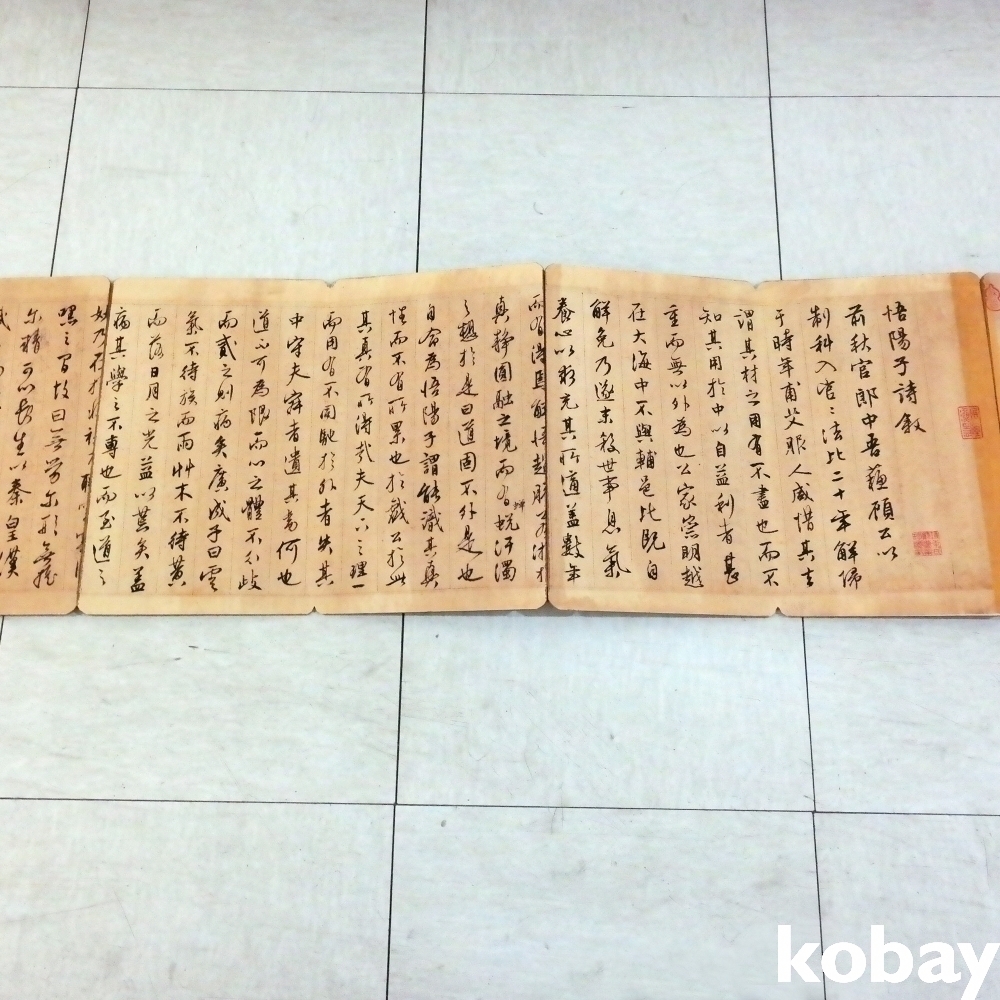 悟陽子詩敘
前秋官郎中吾蘓顧公以
制科入官官法比二十年解佩
于時年甫父服人咸惜其去
謂其材之用有不盡也而不
知其用於中以自益利者甚
重而無以外為也公家崇明越
在大海中不與輔邑比既自
解免乃遂末殺世事息氣
養心以求充其所道蓋數年
而有得焉
真靜圓融之境而有蛻汙濁
之趣於是曰道固不外是也
自命為悟陽子謂能識其真
性而不有所累也於戲公於此
其真有所得哉夫天下之理一
中守夫寂者遺其為何也
而用有不周馳於外者失其
道不可為限而心之體不分歧
而貳之則病矣廣成子曰雲
氣不待族而雨艸木不待黃
而落日月之光益以荒矣蓋
病其學之不專也而至道之
妙乃在於
嘿之間故曰無勞爾形無搖
爾精可以長生以秦皇漢
kobay